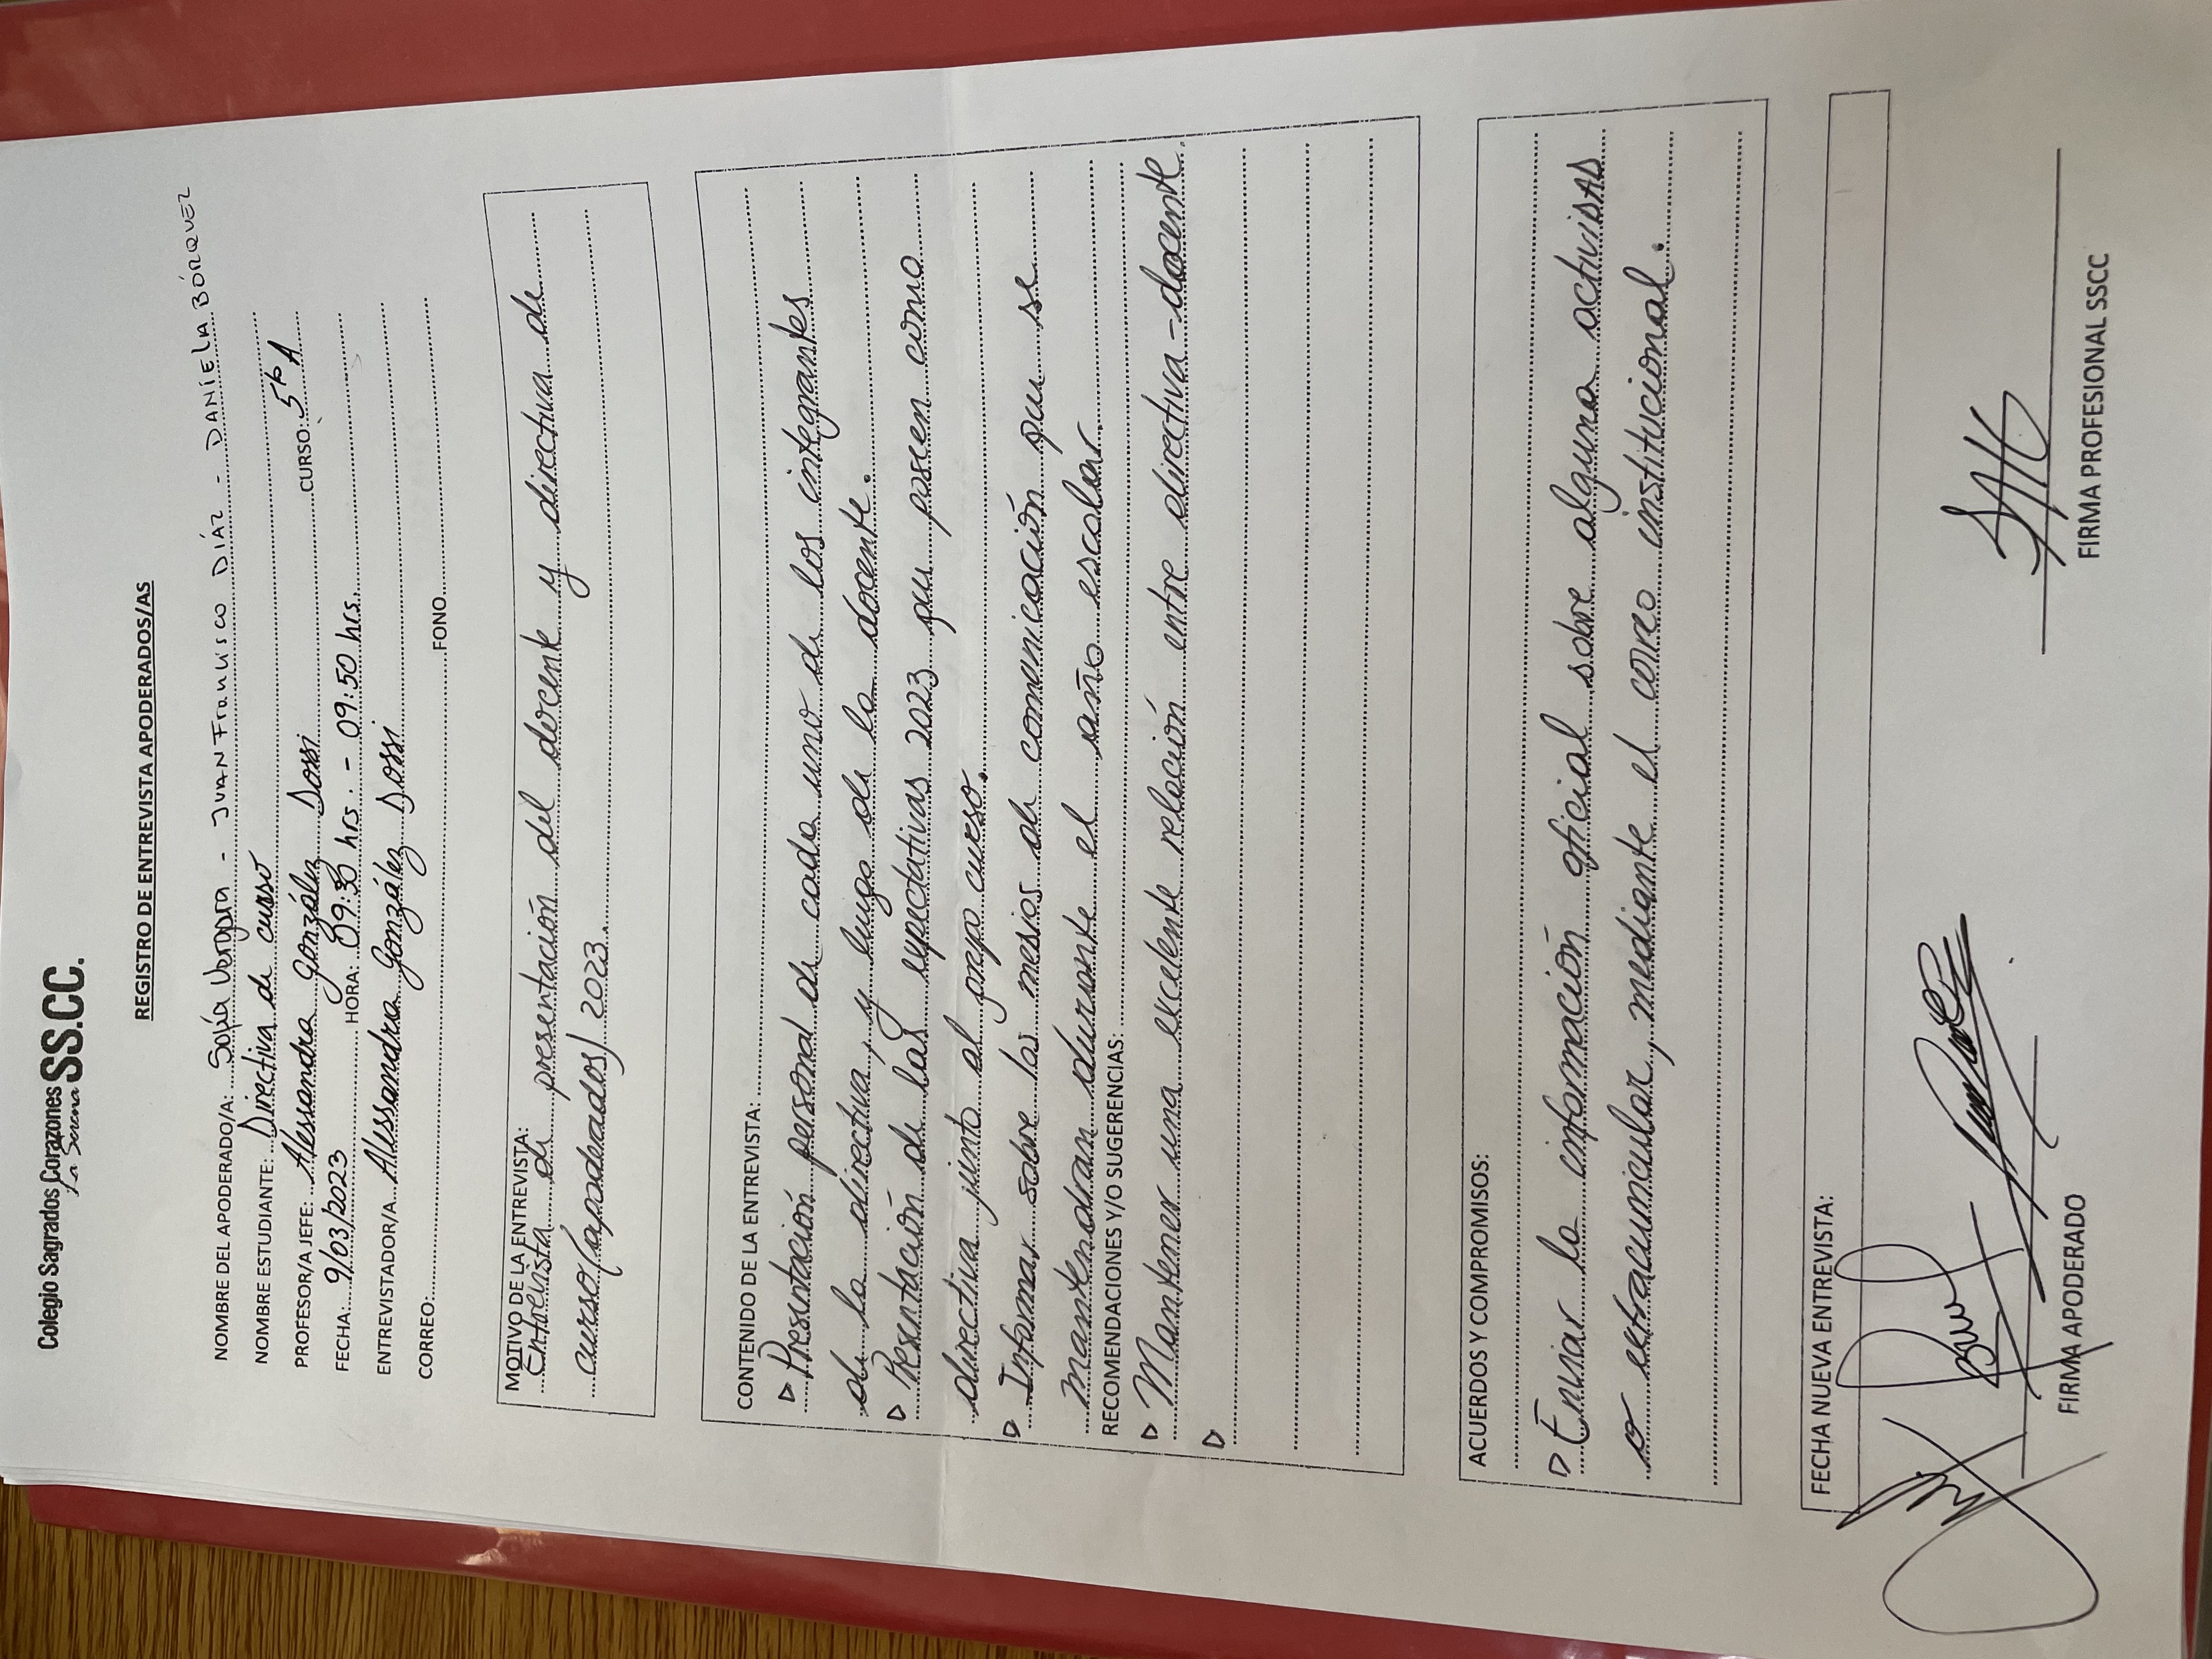 Colegio Sagrados Corazones SS.CC.
La Serena
REGISTRO DE ENTREVISTA APODERADOS/AS
NOMBRE DEL APODERADO/A: Sofía - JUAN Francisco DÍAZ - DANIELA BÓRQUEZ
NOMBRE ESTUDIANTE: Directiva de curso
PROFESOR/A JEFE: Alessandra González Dossi CURSO: 5to A
FECHA: 9/03/2023 HORA: 09:30 hrs. - 09:50 hrs.
ENTREVISTADOR/A Alessandra González Dossi
CORREO: FONO
MOTIVO DE LA ENTREVISTA:
Entrevista de presentación del docente y directiva de
curso (apoderados) 2023.
CONTENIDO DE LA ENTREVISTA:
▷ Presentación personal de cada uno de los integrantes
de la directiva, y luego de la docente.
▷ Presentación de las expectativas 2023 que poseen como
directiva junto al prepo curso.
▷ Informar sobre los mesios de comunicación que se
mantendran durante el año escolar.
RECOMENDACIONES Y/O SUGERENCIAS:
▷ Mantener una excelente relación entre directiva - docente.
▷
ACUERDOS Y COMPROMISOS:
▷ Enviar la información oficial sobre alguna actividad
o extracurricular, mediante el correo institucional.
FECHA NUEVA ENTREVISTA:
FIRMA APODERADO FIRMA PROFESIONAL SSCC